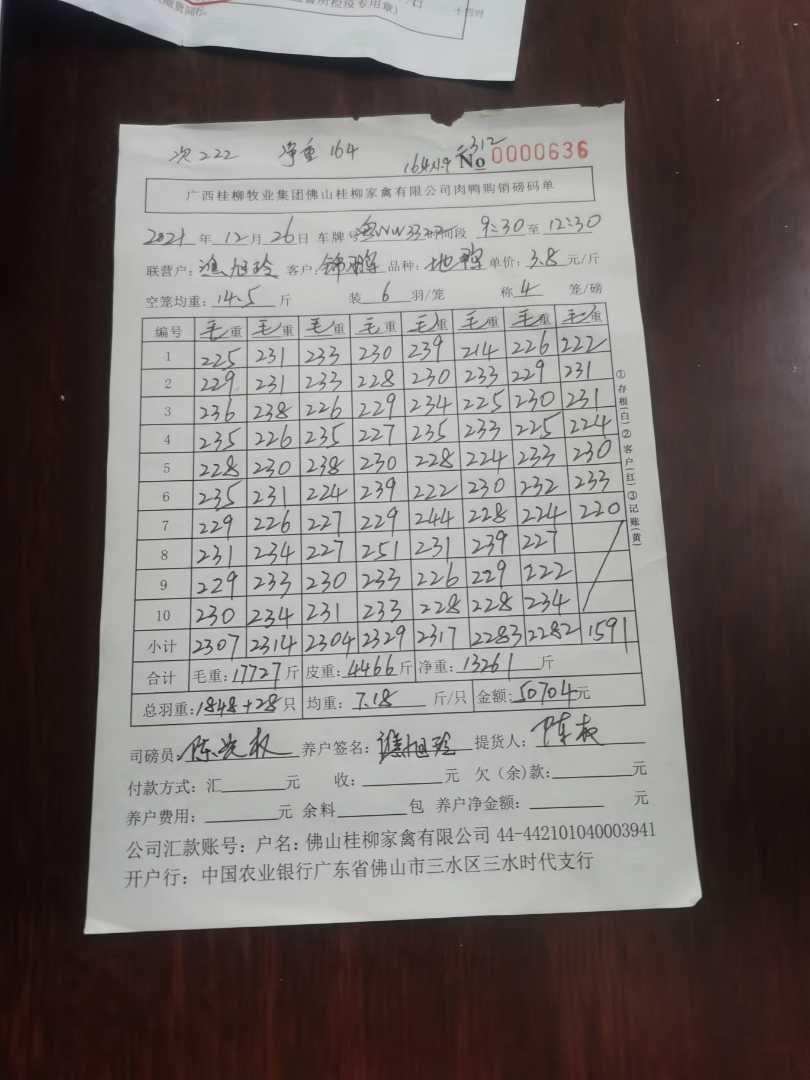 所检疫专用章)
次222 净重164 164×1.9 =312 No 0000636
广西桂柳牧业集团佛山桂柳家禽有限公司肉鸭购销磅码单
2021 年 12 月 26 日 车牌号 段 9:30 至 12:30
联营户: 旭玲 客户: 锦鹏 品种: 地鸭 单价: 3.8 元/斤
空笼均重: 14.5 斤 装 6 羽/笼 称 4 笼/磅
编号 毛重 毛重 毛重 毛重 毛重 毛重 毛重 毛重
1 225 231 233 230 239 214 226 222
2 229 231 233 228 230 233 229 231
3 236 238 226 229 234 225 230 231
4 235 226 235 227 235 233 225 224
5 228 230 238 230 228 224 233 230
6 235 231 224 239 222 230 232 233
7 229 226 227 229 244 228 224 220
8 231 234 227 251 231 239 227
9 229 233 230 233 226 229 222
10 230 234 231 233 228 228 234
小计 2307 2314 2304 2329 2317 2283 2282 1591
合计 毛重: 17727 斤 皮重: 4466 斤 净重: 13261 斤
总羽重: 1848+28 只 均重: 7.18 斤/只 金额: 50704 元
①存根(白)②客户(红)③记账(黄)
司磅员: 陈 权 养户签名: 旭玲 提货人: 陈
付款方式: 汇 元 收: 元 欠(余)款: 元
养户费用: 元 余料 包 养户净金额: 元
公司汇款账号: 户名: 佛山桂柳家禽有限公司 44-442101040003941
开户行: 中国农业银行广东省佛山市三水区三水时代支行